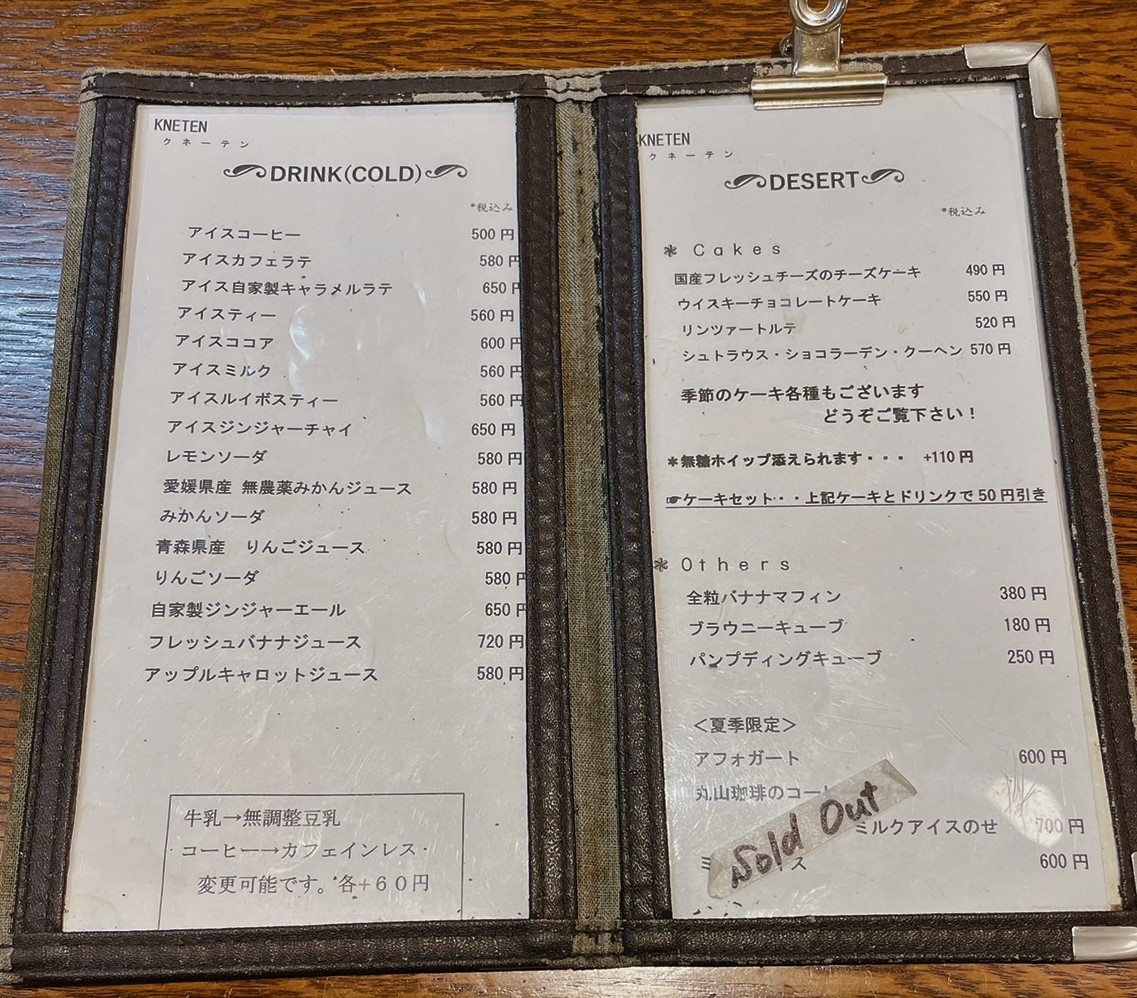 KNETEN
クネーテン
DRINK(COLD)
*税込み
アイスコーヒー 500円
アイスカフェラテ 580円
アイス自家製キャラメルラテ 650円
アイスティー 560円
アイスココア 600円
アイスミルク 560円
アイスルイボスティー 560円
アイスジンジャーチャイ 650円
レモンソーダ 580円
愛媛県産 無農薬みかんジュース 580円
みかんソーダ 580円
青森県産 りんごジュース 580円
りんごソーダ 580円
自家製ジンジャーエール 650円
フレッシュバナナジュース 720円
アップルキャロットジュース 580円
牛乳→無調整豆乳
コーヒー→カフェインレス・
変更可能です。各+60円
KNETEN
クネーテン
DESERT
*税込み
* Cakes
国産フレッシュチーズのチーズケーキ 490円
ウイスキーチョコレートケーキ 550円
リンツァートルテ 520円
シュトラウス・ショコラーデン・クーヘン 570円
季節のケーキ各種もございます
どうぞご覧下さい!
*無糖ホイップ添えられます・・・ +110円
☞ケーキセット・・上記ケーキとドリンクで50円引き
* Others
全粒バナナマフィン 380円
ブラウニーキューブ 180円
パンプディングキューブ 250円
<夏季限定>
アフォガート 600円
丸山珈琲のコー
ミルクアイスのせ 700円
ミ ス 600円
Sold Out